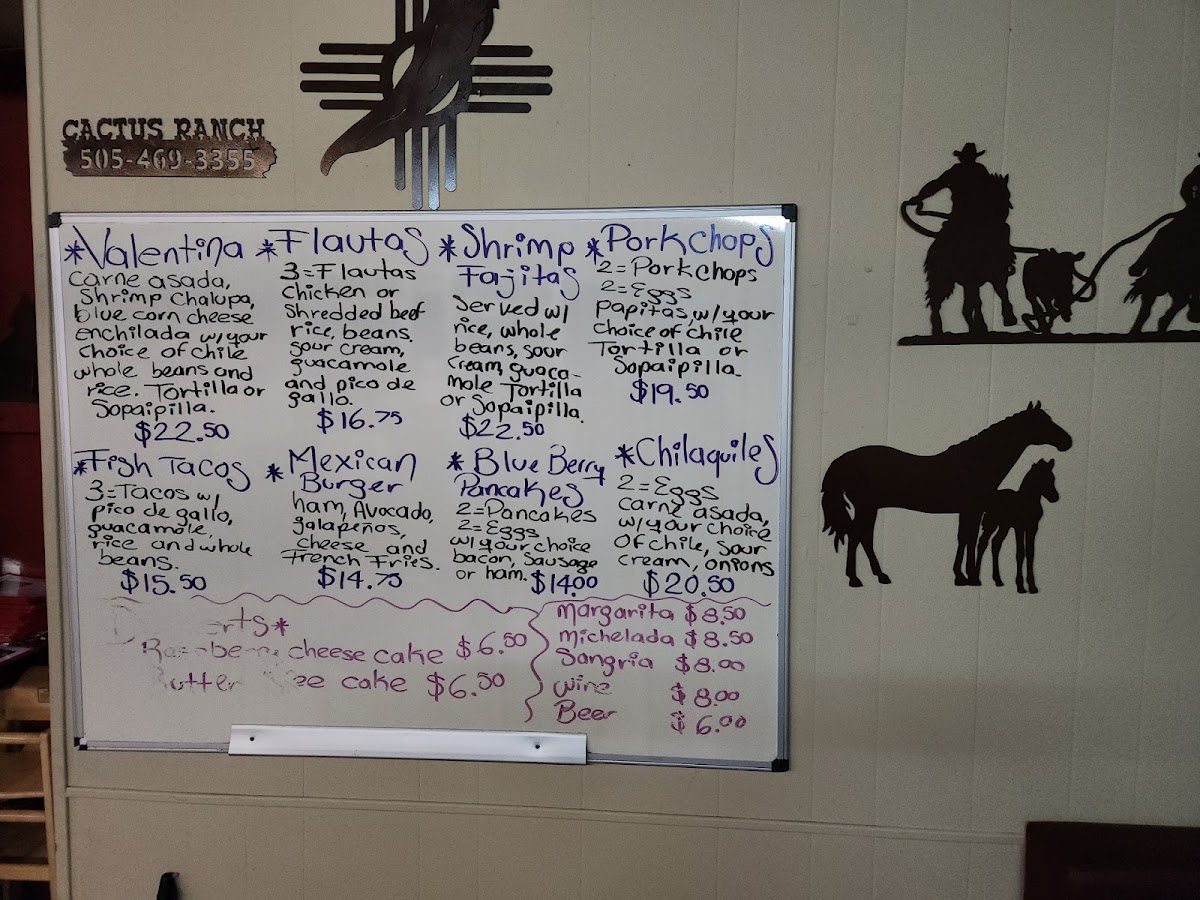 CACTUS RANCH
505-469-3355
*Valentina
carne asada,
Shrimp Chalupa,
blue corn cheese
enchilada w/your
Choice of Chile
whole beans and
rice. Tortilla or
Sopaipilla.
$22.50
*Flautas
3=Flautas
Chicken or
Shredded beef
rice, beans.
sour cream,
guacamole
and pico de
gallo.
$16.75
*Shrimp
Fajitas
Served w/
rice, whole
beans, sour
cream, guaca-
mole Tortilla
or Sopaipilla.
$22.50
*Porkchops
2=Porkchops
2=Eggs
papitas, w/your
Choice of chile
Tortilla or
Sopaipilla.
$19.50
*Fish Tacos
3=Tacos w/
pico de gallo,
guacamole,
rice and whole
beans.
$15.50
*Mexican
Burger
ham, Avocado,
Jalapeños,
cheese and
French Fries.
$14.75
*Blue Berry
Pancakes
2=Pancakes
2=Eggs
w/your choice
bacon, Sausage
or ham. $14.00
*Chilaquiles
2=Eggs
carne asada,
w/your choice
Of chile, Sour
cream, onions
$20.50
cheese cake $6.50
cake $6.50
Margarita $8.50
Michelada $8.50
Sangria $8.00
Wine $8.00
Beer $6.00